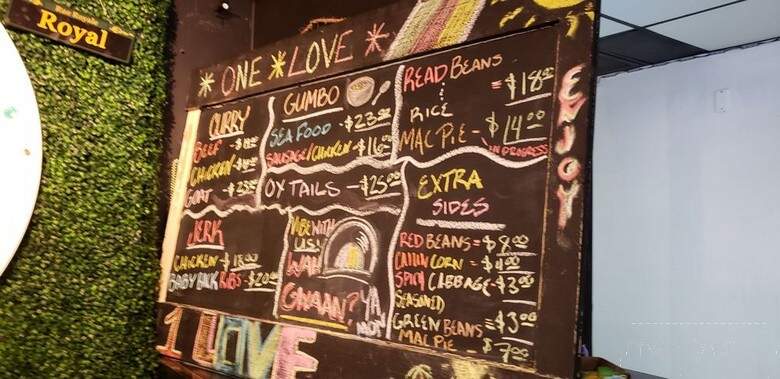 Royal
* ONE * LOVE *
CURRY
BEEF
CHICKEN
GOAT - $23
GUMBO
SEA FOOD - $23.00
SAUSAGE/CHICKEN - $16.00
OX TAILS - $25.00
READ BEANS
&
RICE = $18.00
MAC PIE - $14.00
IN PROGRESS
JERK
CHICKEN - $18.00
BABY BACK RIBS - $20.00
VIBE WITH
US!
WAH
GWAAN?
YA
MON
EXTRA
SIDES
RED BEANS = $8.00
CAJUN CORN = $4.00
SPICY CABBAGE - $3.00
SEASONED
GREEN BEANS = $3.00
MAC PIE - $7.00
ENJOY
1 LOVE